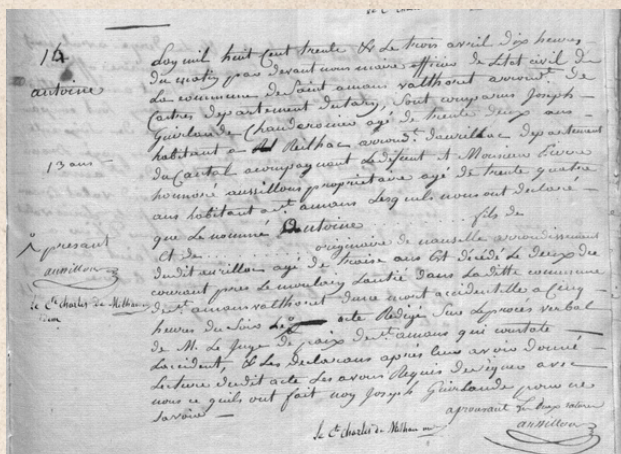 le Cte Charles de
14
antoine
13 ans
presant
aussillon
le Cte Charles de Milhau
L'an mil huit Cent trente & Le trois avril dix heures
du matin par devant nous maire officier de L'état civil de
La commune de Saint amans valthoret arrondt. de
Castres departement du tarn, Sont comparus Joseph
Guirlande Chauderonier agé de trente deux ans
habitant a Reilhac arrondt. d'aurillac departement
du Cantal acompagnant Ledéfunt et Monsieur Pierre
honoré aussillons proprietaire agé de trente quatre
ans habitant a St. amans Lesquels nous ont declaré
que Le nommé antoine fils de
et de originaire de arrondissement
dudit aurillac agé de treise ans Est décédé Le deux du
courant pres Le moulary Lautié dans La ditte commune
de St. amans valthoret d'une mort accidentelle a Cinq
heures du Soir Le pt. acte Redigé Sur Le procés verbal
de M. Le Juge de paix de St. amans qui constate
L'accident, & Les declarans apres leur avoir donné
Lecture dudit acte Les avons Requis de signer avec
nous ce quils ont fait Joseph Guirlande pour ne
Savoir
aprouvant
aussillon
le Cte Charles de Milhau